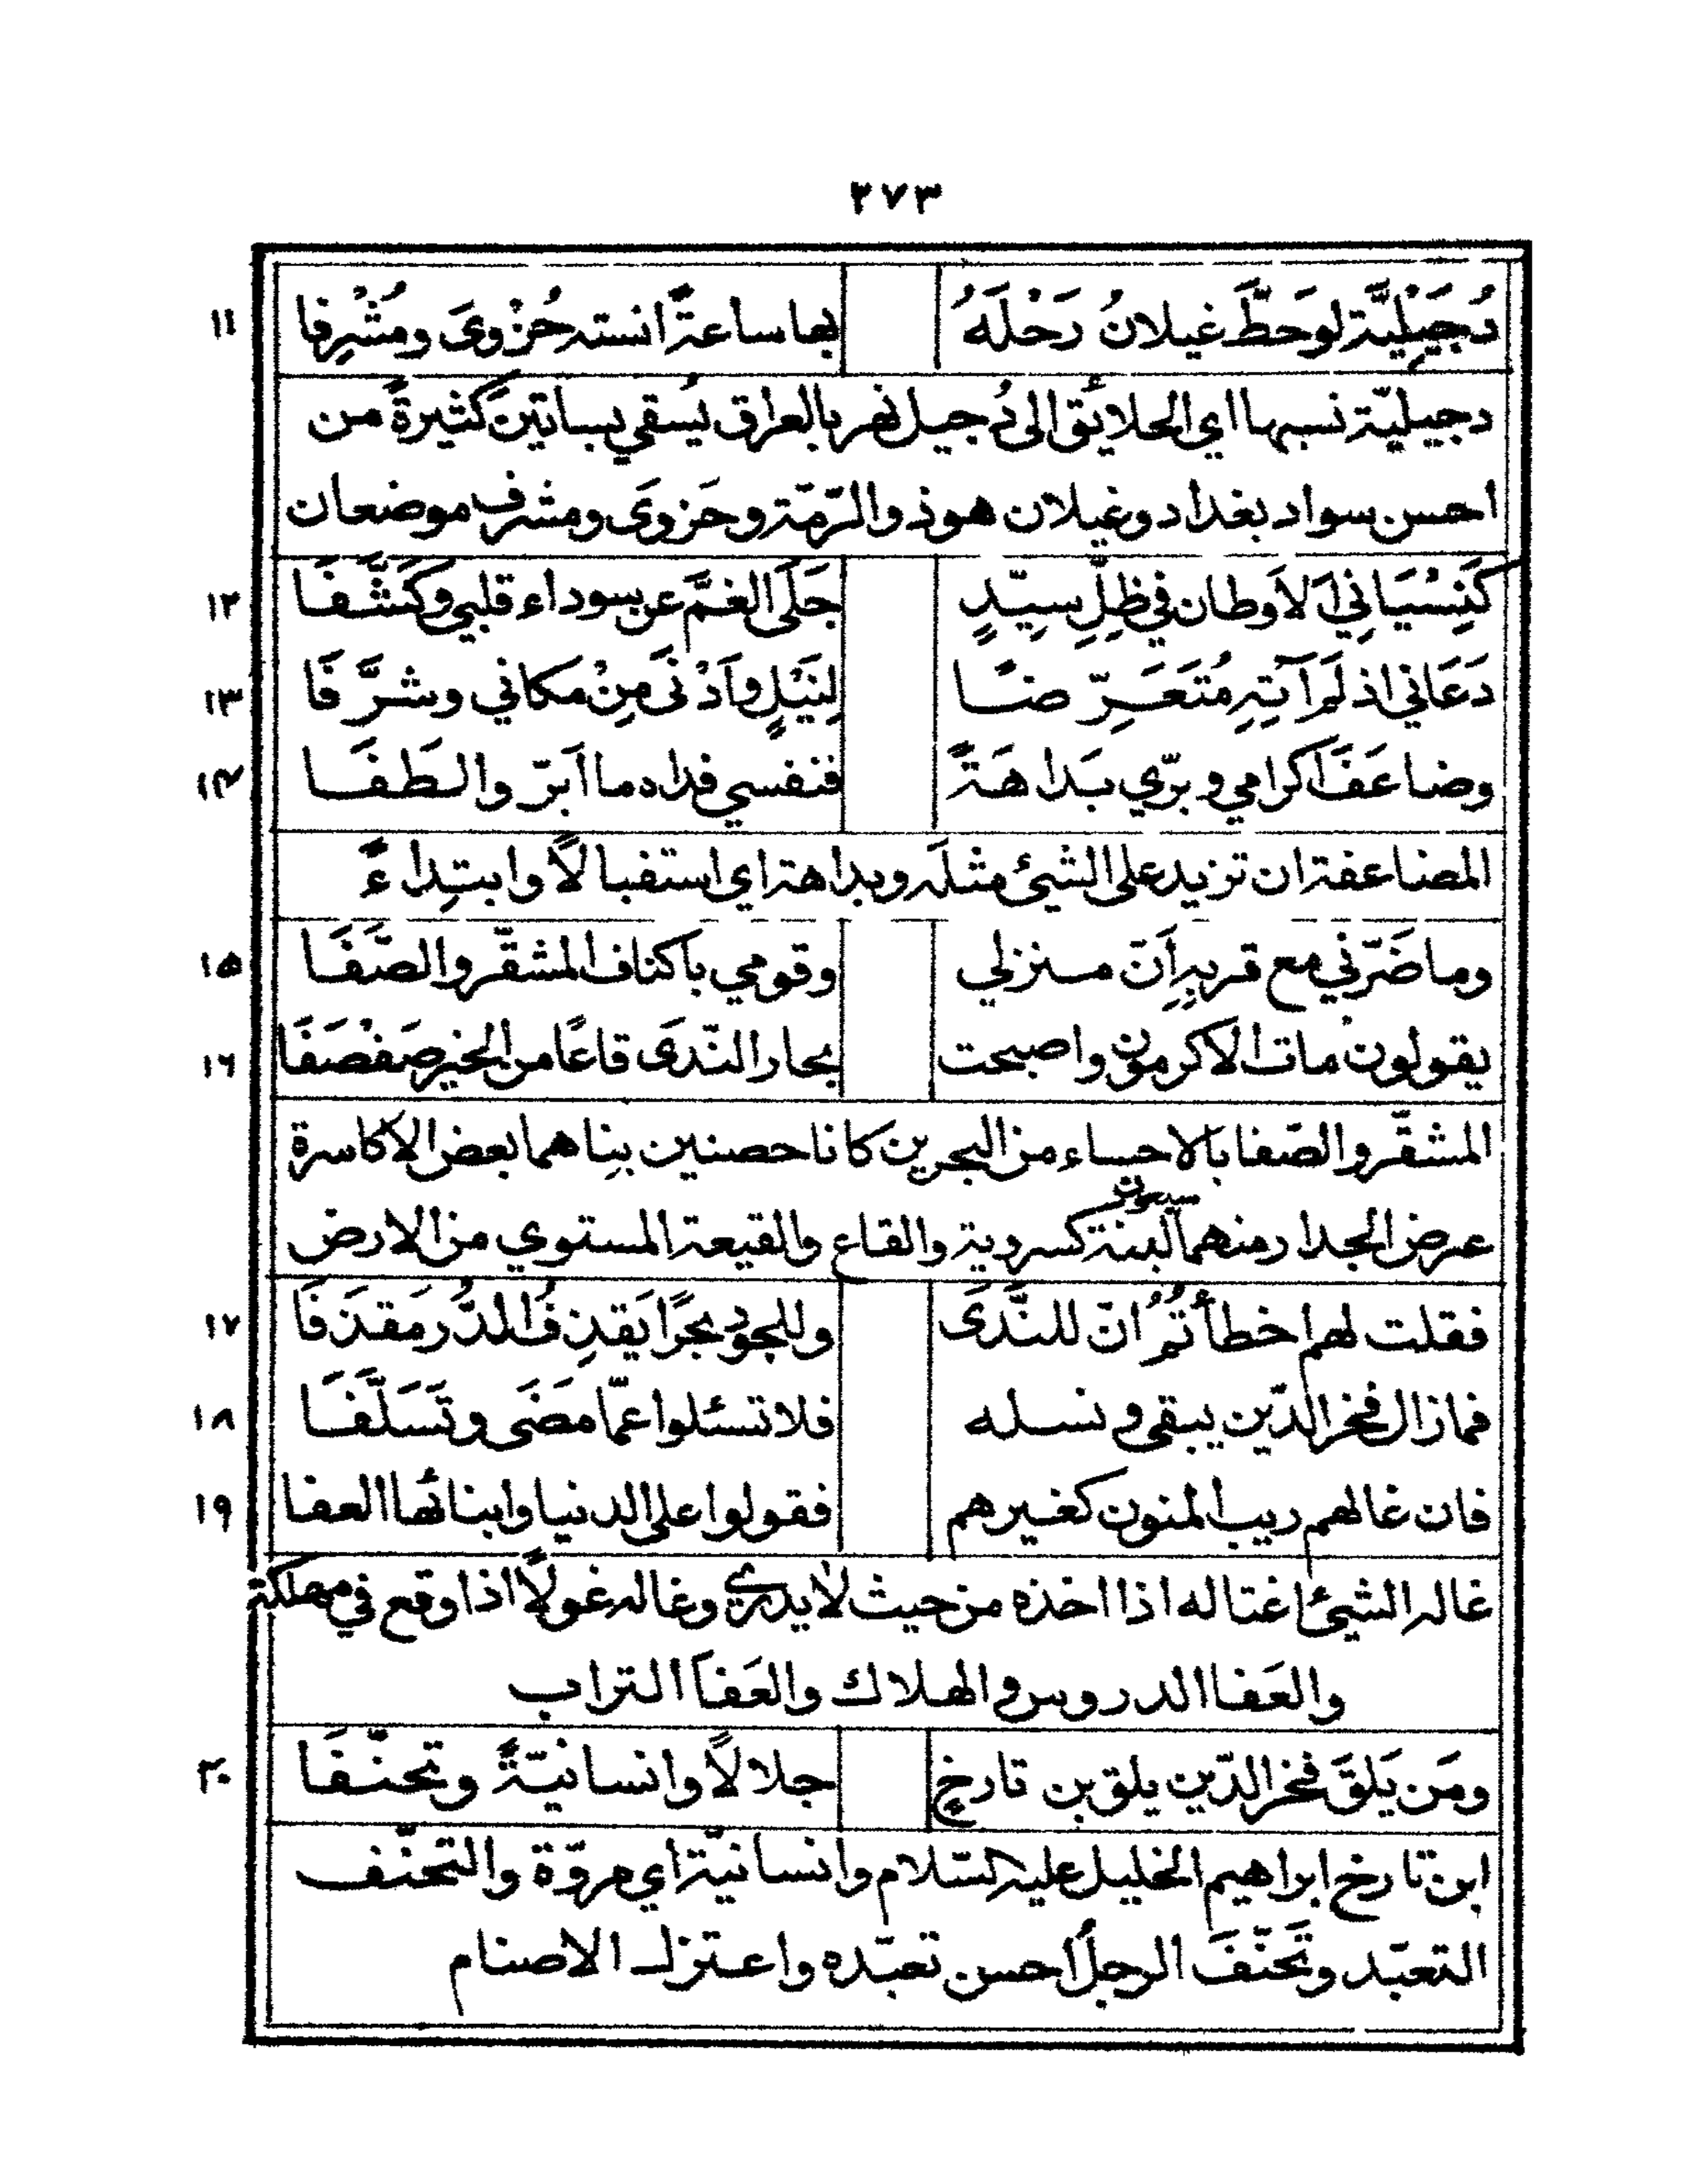 ٢٧٣
دُجَيْلِيَّة لو حَطَّ غيلانُ رَحْلَهُ بها ساعةً انسته حُزْوىَ ومُشْرِفا ١١
دجيليّة نسبها اي الحلائق الى دُجيل نهر بالعراق يُسقي بساتينَ كثيرةً من
احسن سواد بغداد وغيلان هو ذو الرّمّة وحَزوىَ ومشرف موضعان
كَنِسْيَانِيَ الاَوطان في ظلِّ سيّدٍ جَلَى الغمَّ عن سوداء قلبي وكَشَّفَا ١٢
دَعَاني اذ لَم آتِهِ مُتَعَرِّضًا لِنَيْلٍ وأَدْنَى مِنْ مكاني وشرَّفَا ١٣
وضاعَفَ اكرامي وبرّي بَدَاهَةً فنفسي فداه ما اَبَرّ والطَفَا ١٤
المضاعفة ان تزيد على الشيئ مثلَه وبداهة اي استقبالاً وابتِداءً
وما ضَرّني مع قربِهِ أَنّ منزلي وقومي باكناف المشقّر والصَّفَا ١٥
يقولون مات الاكرمون واصبحت بحار النّدىَ قاعًا من الخير صَفْصَفَا ١٦
المشقّر والصّفا بالاحساء من البحرين كانا حصنين بناهما بعض الاكاسرة
عرض الجدار منهما لبنة كسروية والقاع والقيعة المستوي من الارض
فقلت لهم اخطأتُمُ انّ للنَّدَى وللجود بحرًا يَقذِفُ الدُّر مَقذَفَا ١٧
فما زال فخر الدّين يبقى ونسله فلا تسئلوا عمّا مضَى وتَسَلَّفَا ١٨
فان غالهم ريب المنون كغيرهم فقولوا على الدنيا وابنائها العفا ١٩
غاله الشيئ اغتاله اذا اخذه من حيث لا يدري وغاله غولاً اذا وقع في مهلكة
والعَفا الدروس والهلاك والعَفا التراب
ومَن يَلقَ فخر الدّين يلق بن تارخٍ جلالاً وانسانيّةً وتحنّفَا ٢٠
ابن تارخ ابراهيم الخليل عليه السّلام وانسانيّة اي مروّة والتحنّف
التعبّد وتَحنّفَ الرجلُ احسن تعبّده واعتزل الاصنام